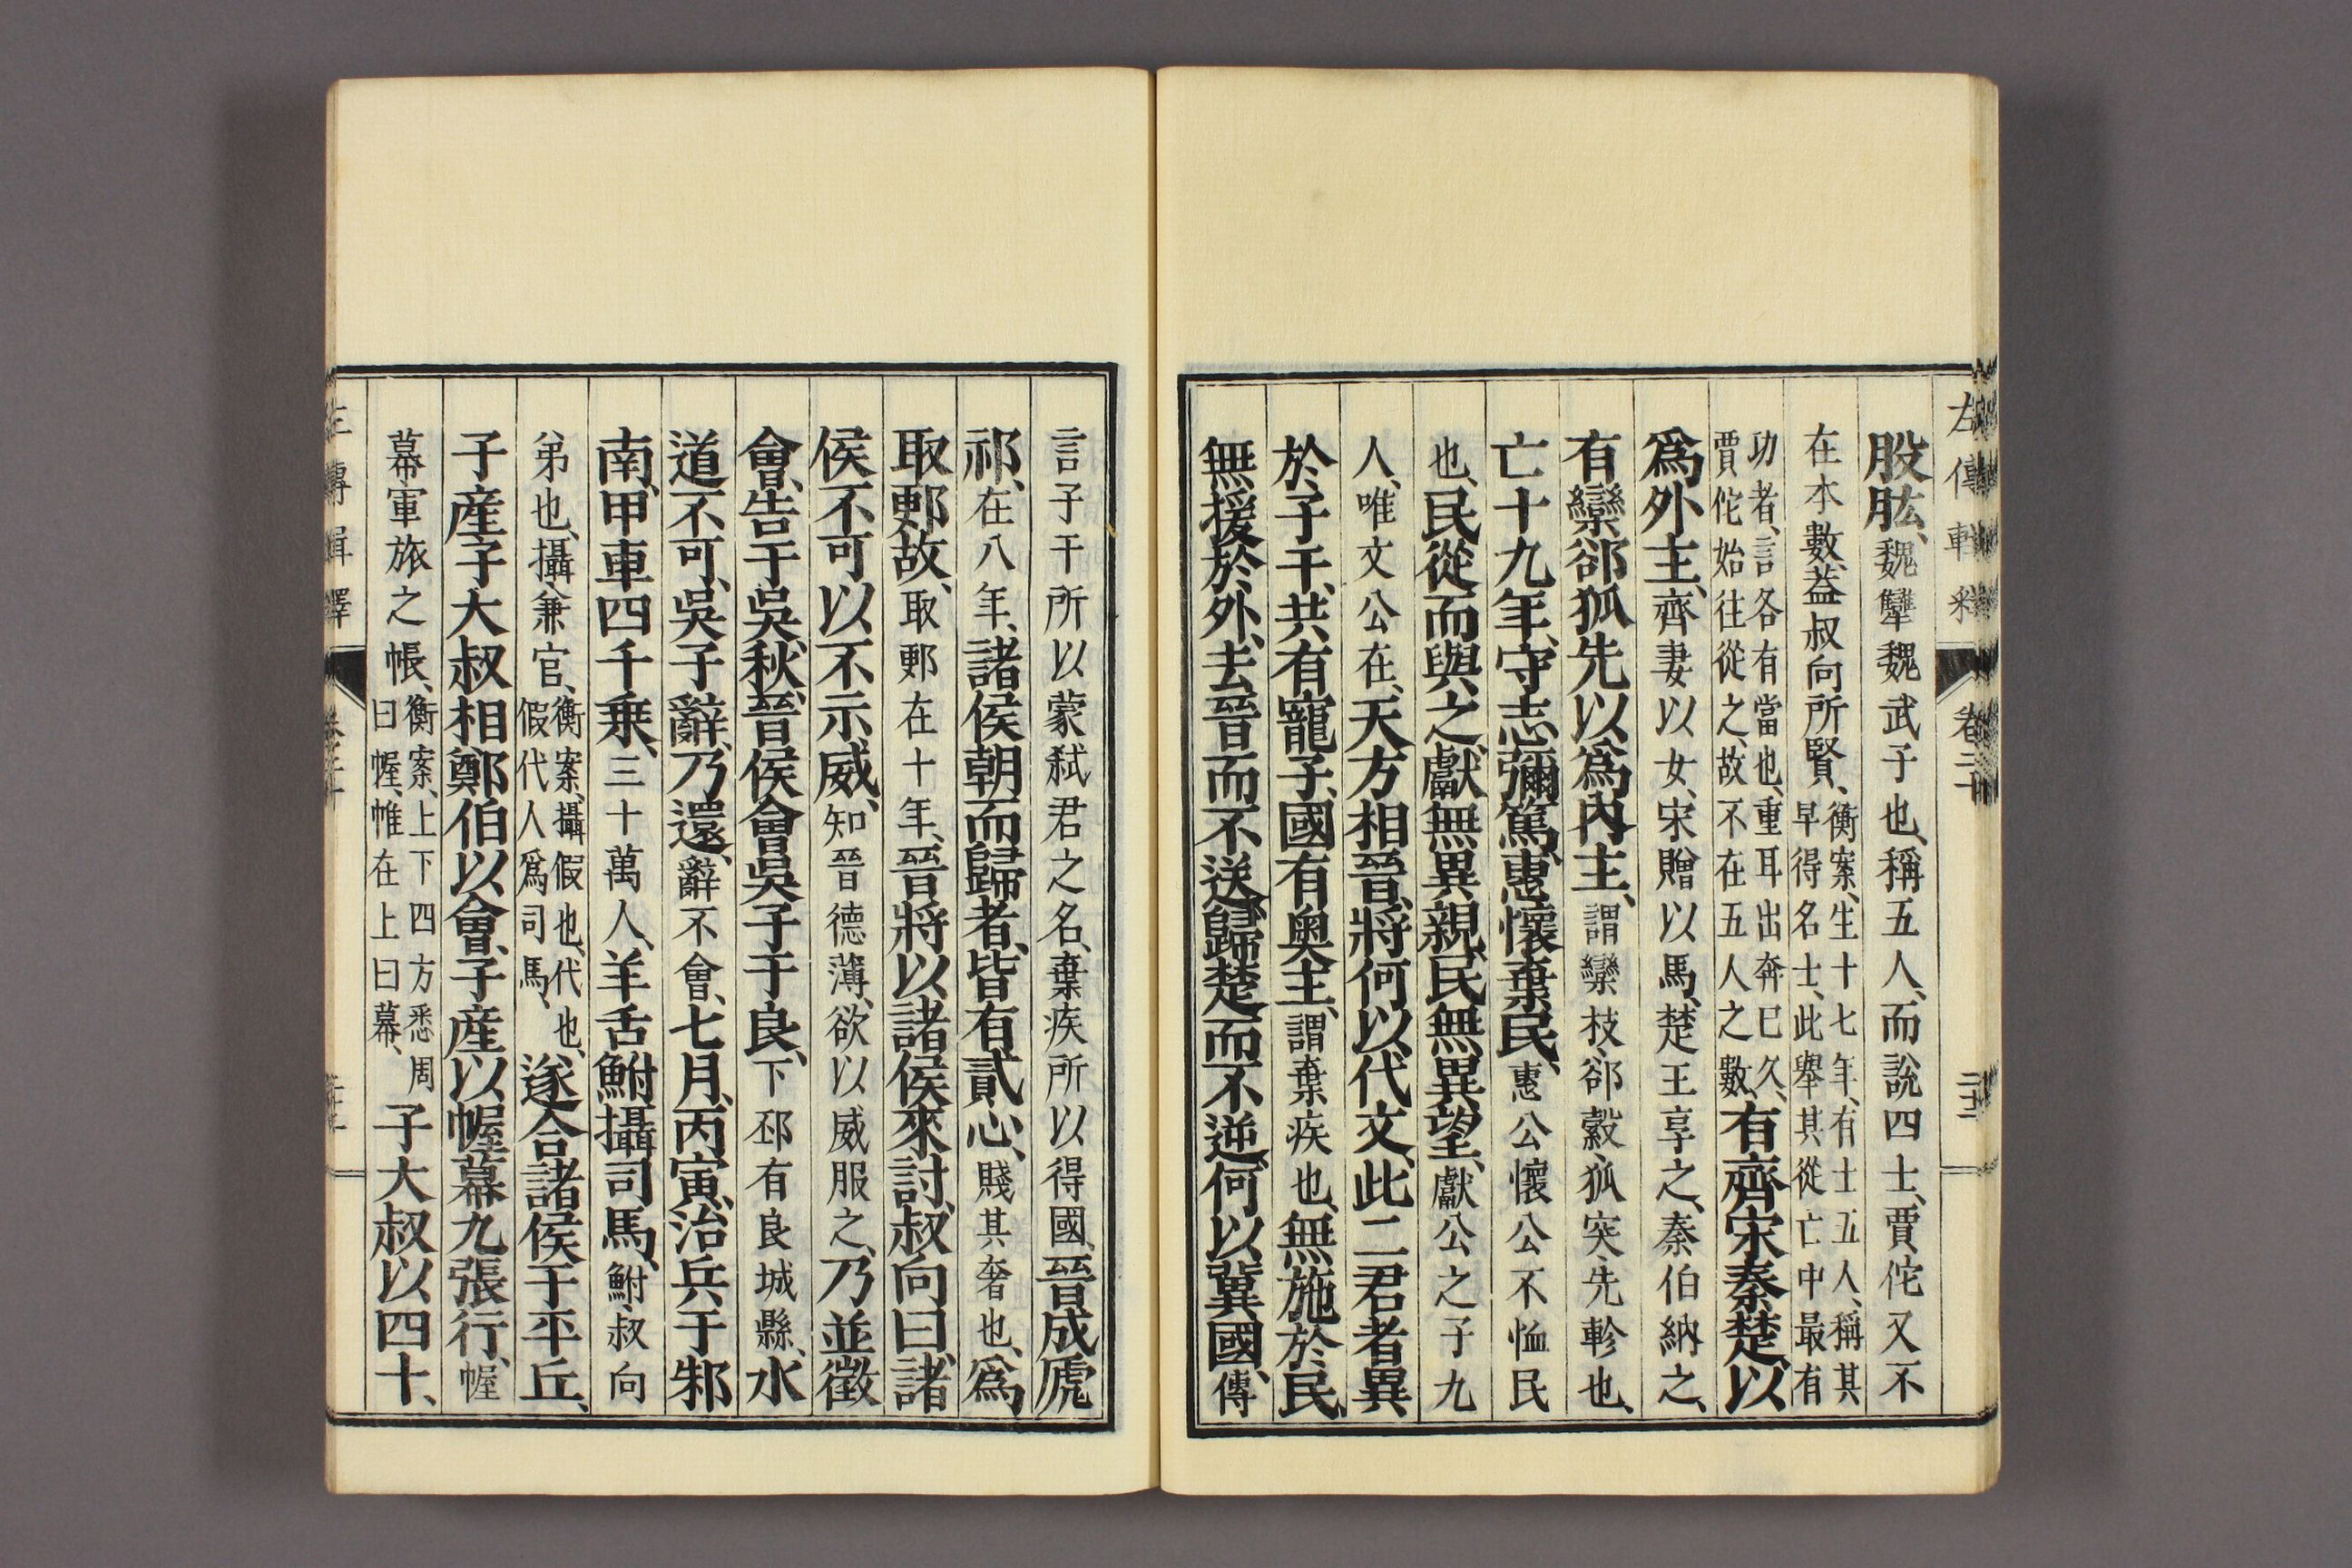 股肱、魏犫魏武子也、稱五人、而說四士、賈佗又不
在本數、蓋叔向所賢、衡案、生十七年、有士五人、稱其
早得名士、此舉其從亡中最有
功者、言各有當也、重耳出奔已久、
賈佗始往從之、故不在五人之數、有齊宋秦楚、以
爲外主、齊妻以女、宋贈以馬、楚王享之、秦伯納之、
有欒郤狐先以爲內主、謂欒枝、郤縠、狐突、先軫也、
亡十九年、守志彌篤、惠懷棄民、惠公懷公不恤民
也、民從而與之、獻無異親、民無異望、獻公之子九
人、唯文公在、天方相晉、將何以代文、此二君者異
於子干、共有寵子、國有奧主、謂棄疾也、無施於民、
無援於外、去晉而不送、歸楚而不逆、何以冀國、傳
左傳輯釋
卷二十
言子干所以蒙弒君之名、棄疾所以得國、晉成虒
祁、在八年、諸侯朝而歸者、皆有貳心、賤其奢也、爲
取郠故、取郠在十年、晉將以諸侯來討、叔向曰、諸
侯不可以不示威、知晉德薄、欲以威服之、乃並徵
會、告于吳、秋、晉侯會吳子于良、下邳有良城縣、水
道不可、吳子辭、乃還、辭不會、七月、丙寅、治兵于邾
南、甲車四千乘、三十萬人、羊舌鮒攝司馬、鮒、叔向
弟也、攝兼官、衡案、攝、假也、代也、
假代人爲司馬、遂合諸侯于平丘、
子產子大叔相鄭伯以會、子產以幄幕九張行、幄
幕軍旅之帳、衡案、上下四方悉周
曰幄、帷在上曰幕、子大叔以四十、
左傳輯釋
卷二十